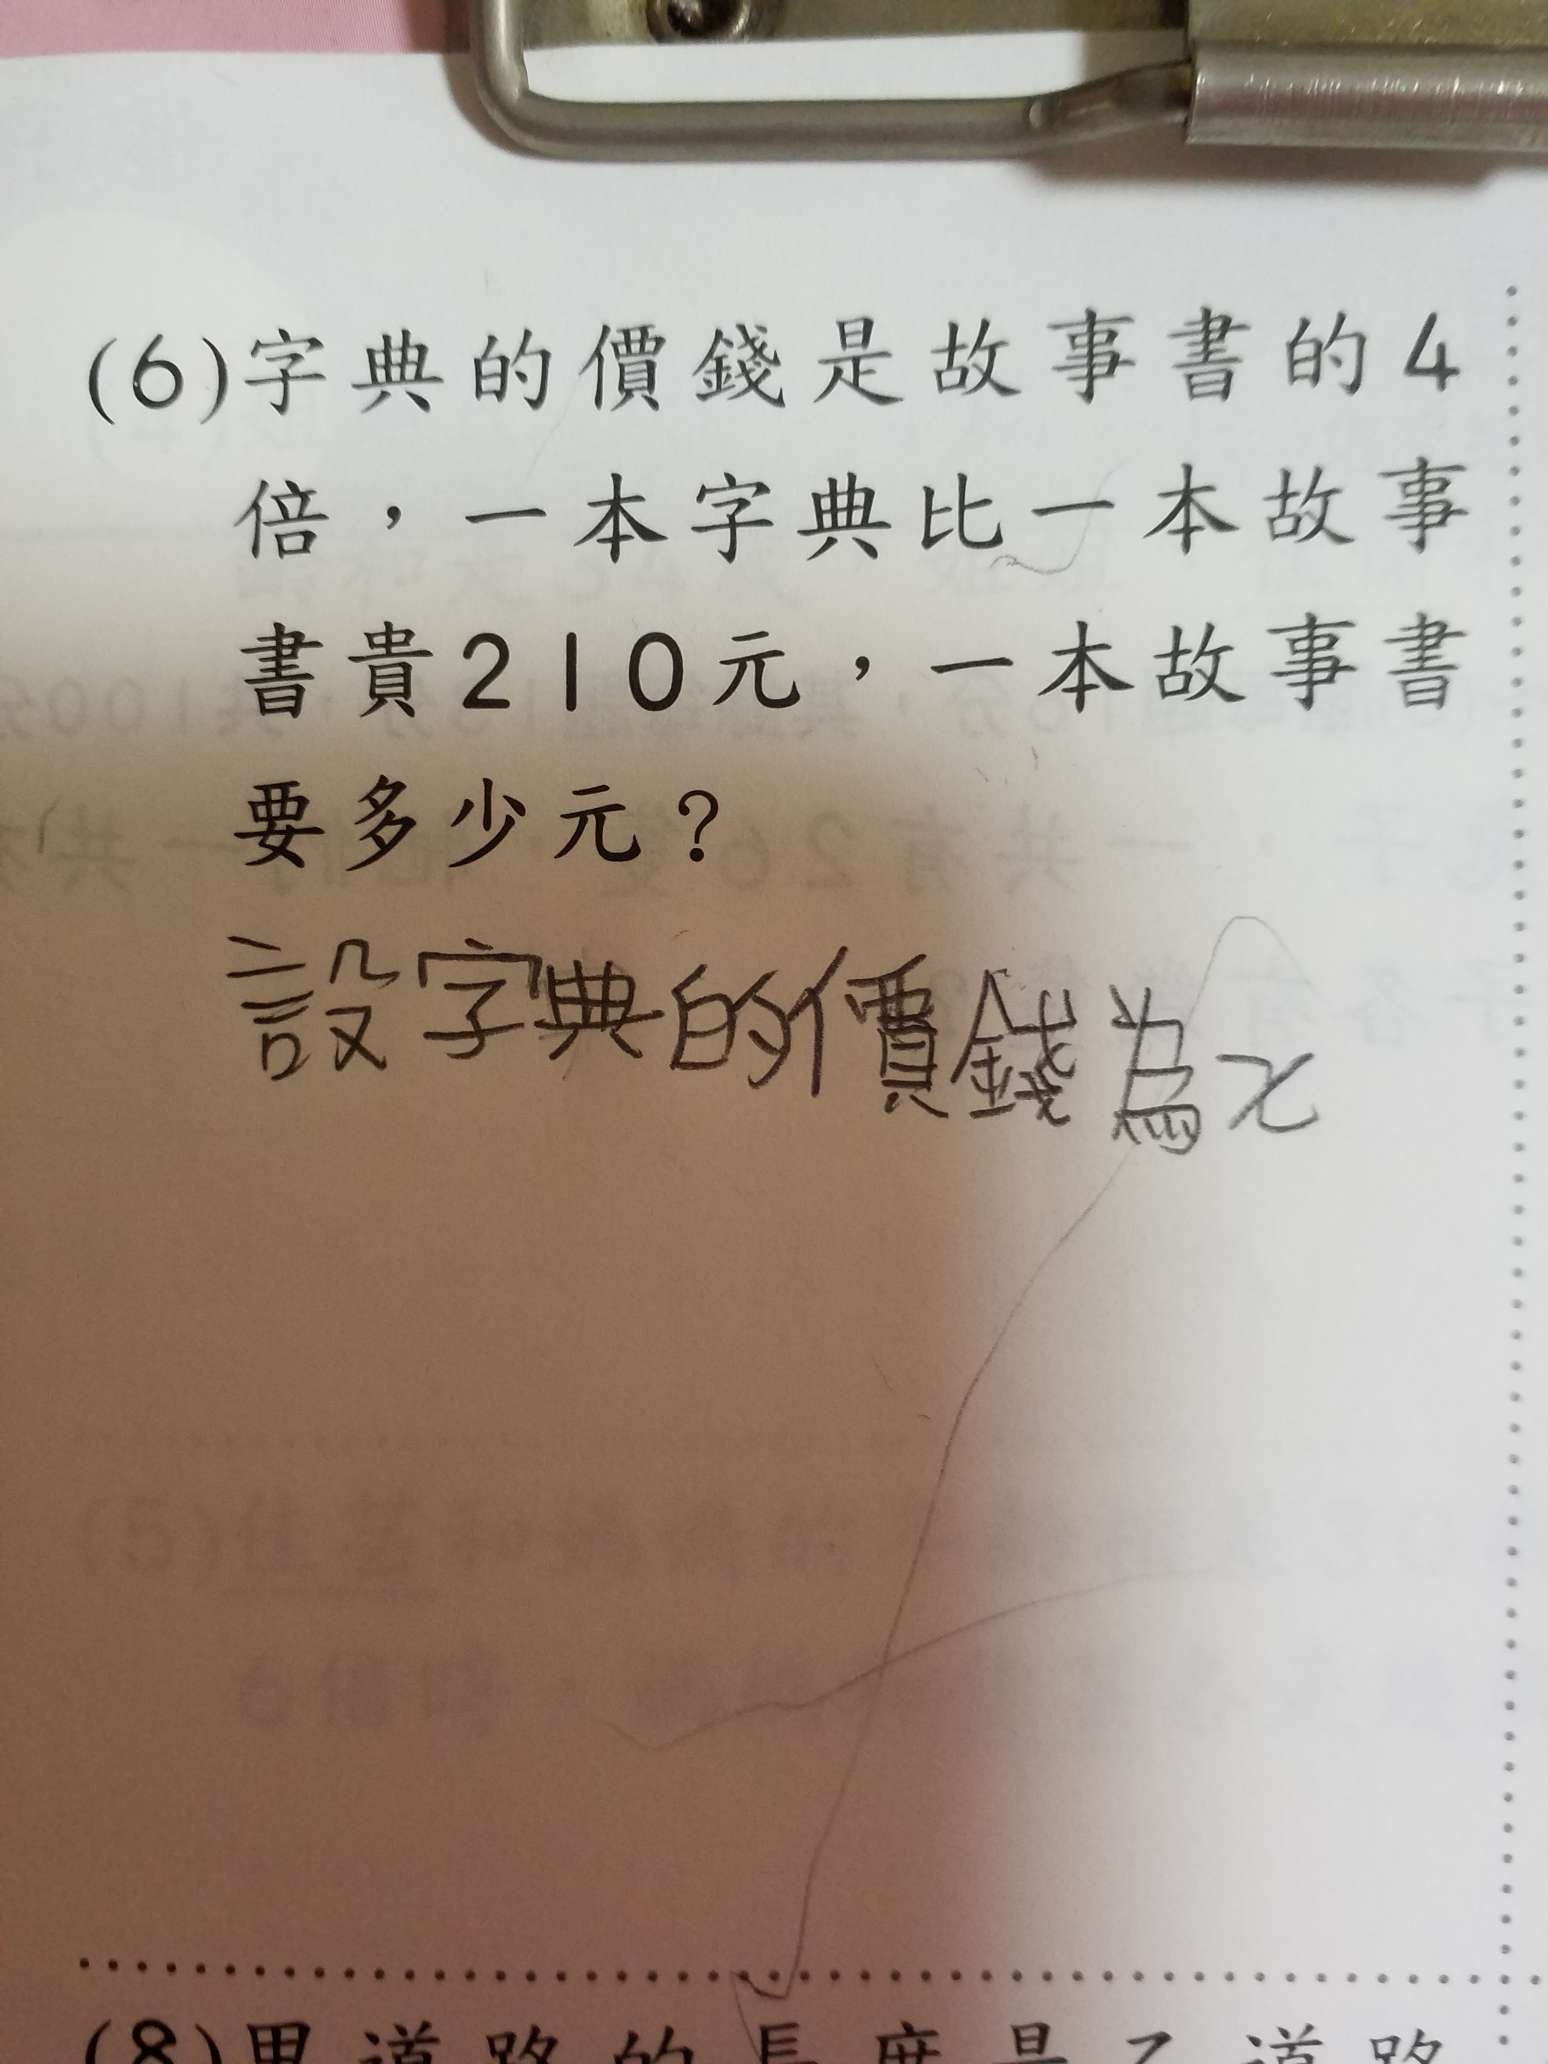 (6)字典的價錢是故事書的4
倍，一本字典比一本故事
書貴210元，一本故事書
要多少元？
設字典的價錢為x
(8)甲道路的長度是乙道路